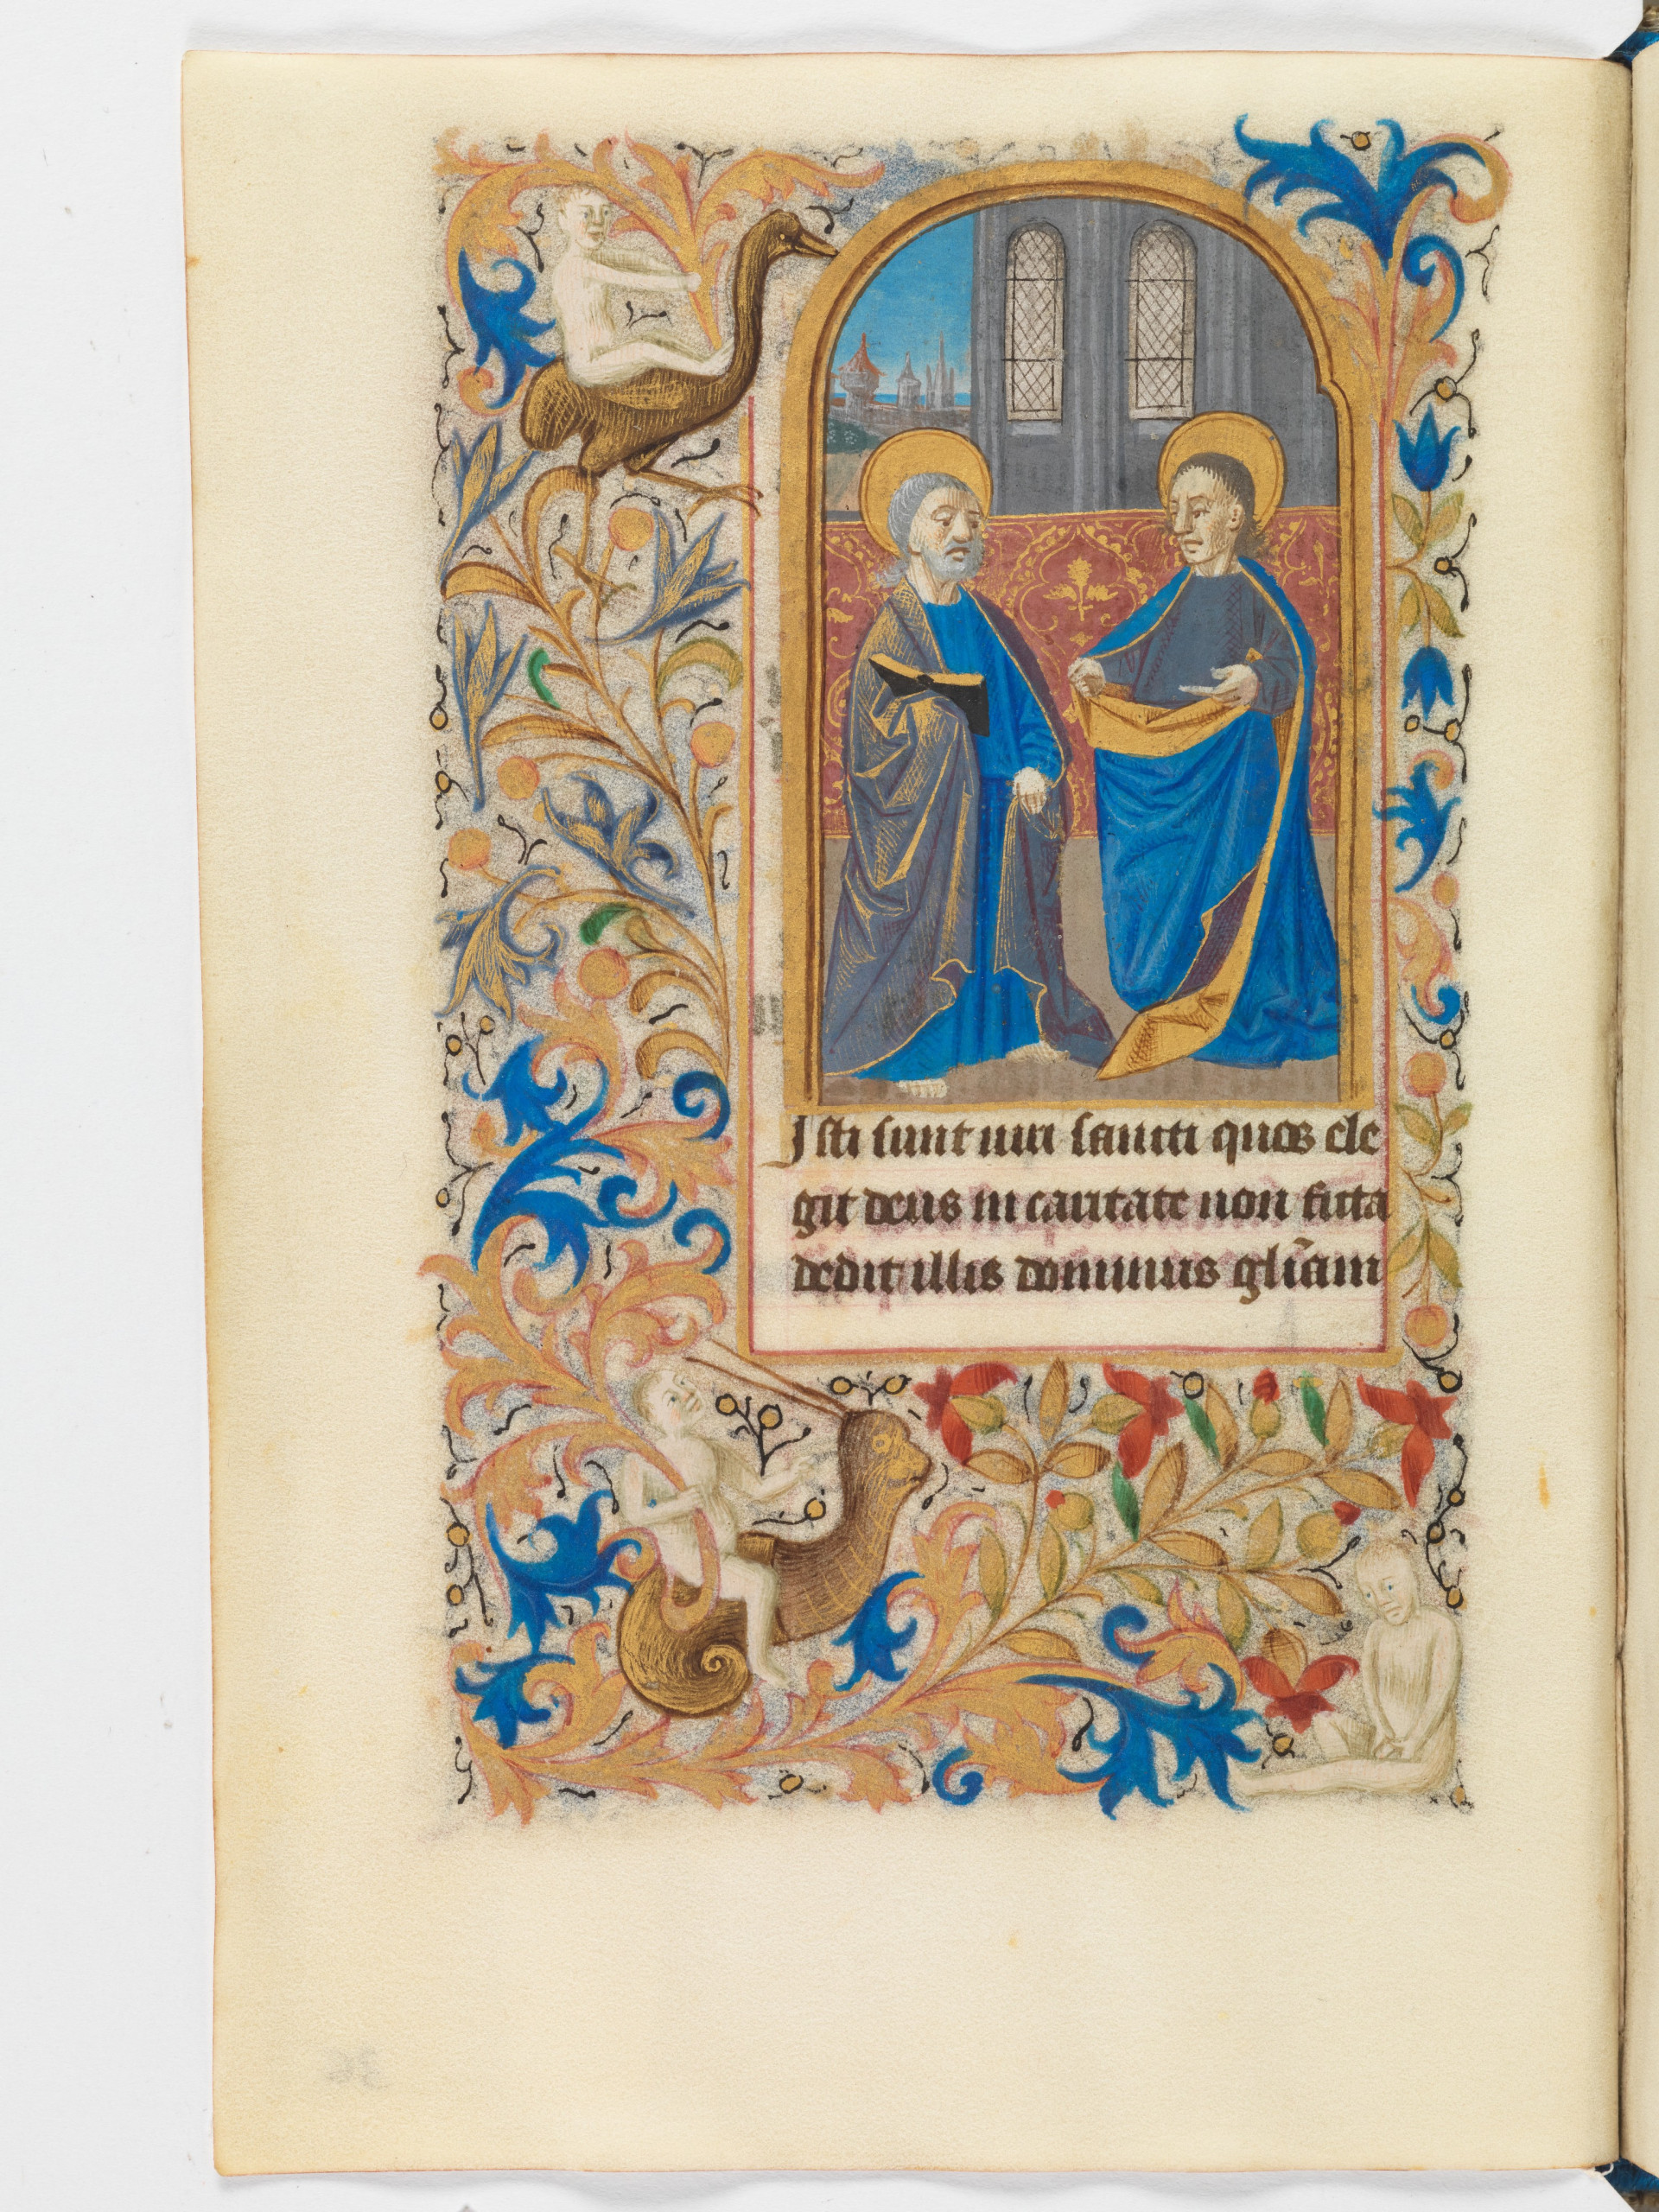 Isti sunt uiri sancti quos ele
git deus in caritate non ficta
dedit illis dominus gl̃iam